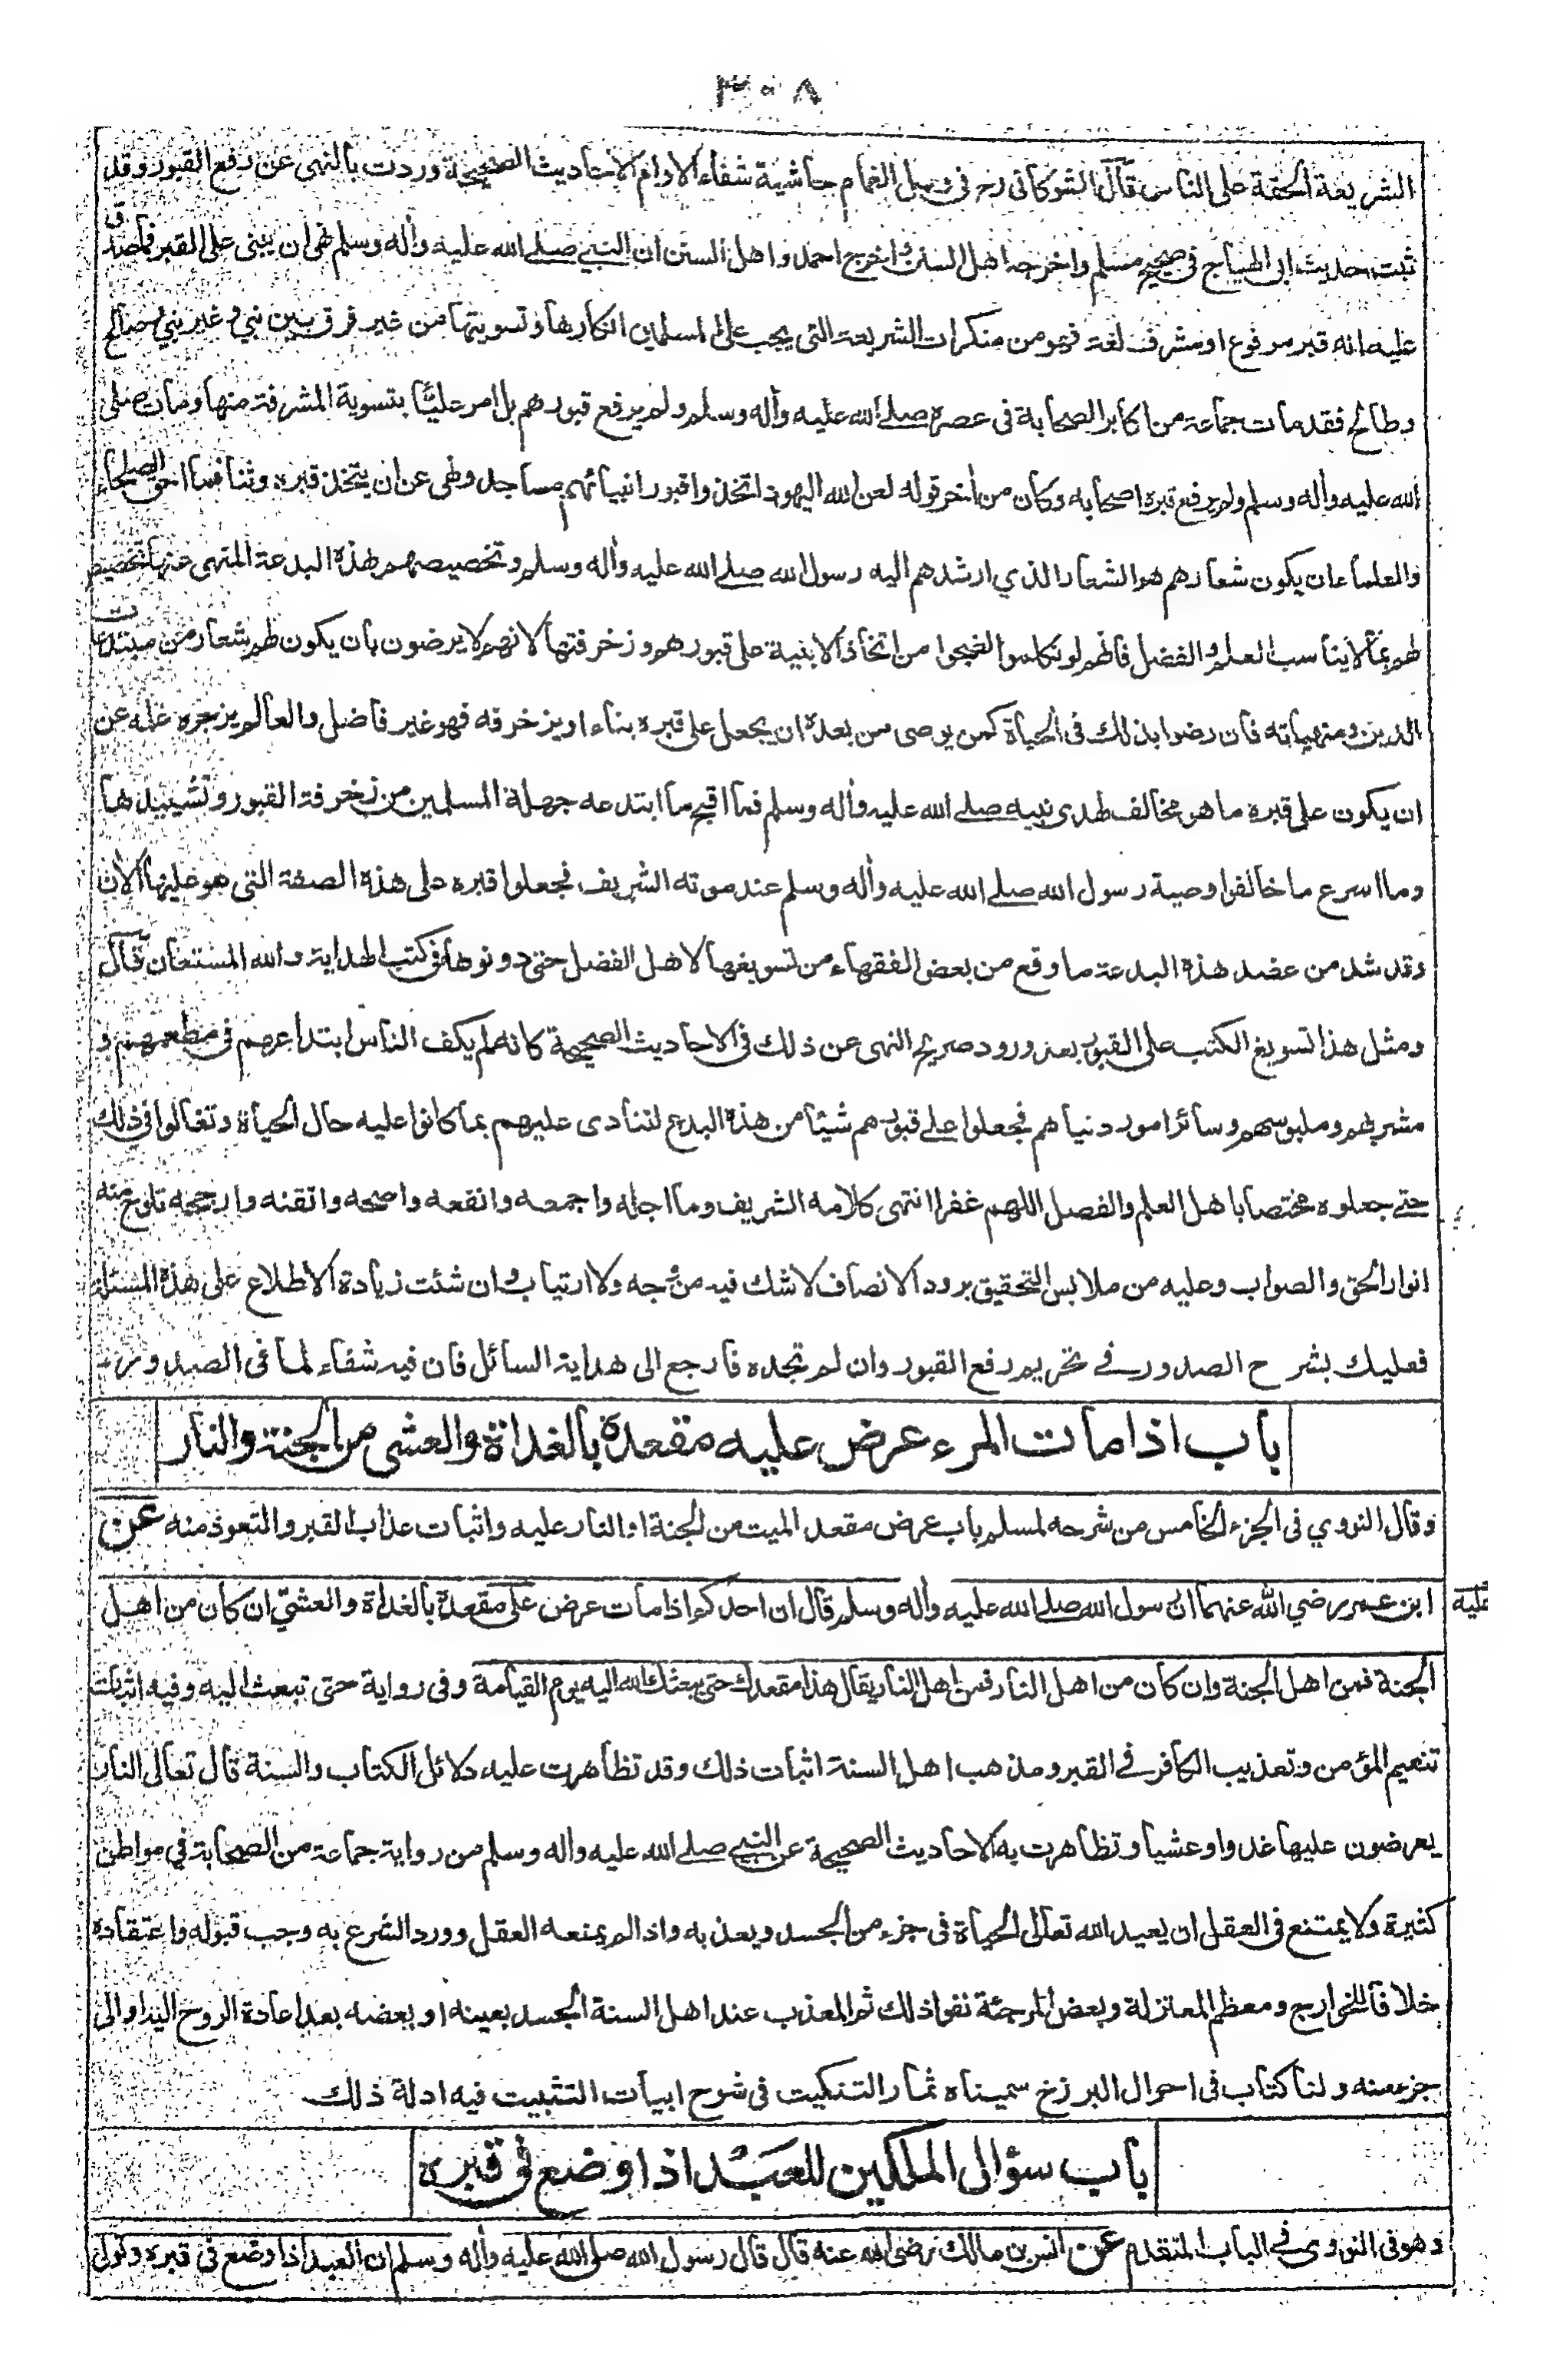 ٣٠٨
الشريعة الحقة على الناس قال الشوكاني رح في وبل الغمام حاشية شفاء الاوام الاحاديث الصحيحة وردت بالنهي عن رفع القبور وقد
ثبت حديث ابي الهياج في صحيح مسلم واخرجه اهل السنن واخرج احمد واهل السنن ان النبي صلے الله عليه وأله وسلم نهى ان يبنى على القبر فما صدق
عليه انه قبر مرفوع او مشرف لغة فهو من منكرات الشريعة التي يجب على المسلمين انكارها وتسويتها من غير فرق بين نبي وغير نبي وصالح
وطالح فقد مات جماعة من اكابر الصحابة في عصره صلے الله عليه وأله وسلم ولم يرفع قبورهم بل امر عليًّا بتسوية المشرفة منها ومات صلى
الله عليه وأله وسلم ولم يرفع قبره اصحابه وكان من أخر قوله لعن الله اليهود اتخذوا قبور انبيائهم مساجد ونهى عن ان يتخذ قبره وثنا فما احق الصلحاء
والعلماء ان يكون شعارهم هو الشعار الذي ارشدهم اليه رسول الله صلے الله عليه وأله وسلم وتخصيصهم بهذه البدعة المنهي عنها تخصيص
لهم بما لا يناسب العلم والفضل فانهم لو تكلموا لضجوا من اتخاذ الابنية على قبورهم وزخرفتها لانهم لا يرضون بان يكون لهم شعار من مبتدعات
الدين ومنهياته فان رضوا بذلك في الحياة كمن يوصي من بعده ان يجعل على قبره بناء او يزخرفه فهو غير فاضل والعالم يزجره علمه عن
ان يكون على قبره ما هو مخالف لهدى نبيه صلے الله عليه وأله وسلم فما اقبح ما ابتدعه جهلة المسلمين من زخرفة القبور وتشييدها
وما اسرع ما خالفوا وصية رسول الله صلے الله عليه وأله وسلم عند موته الشريف فجعلوا قبره على هذه الصفة التي هو عليها الأن
وقد شد من عضد هذه البدعة ما وقع من بعض الفقهاء من تسويغها لاهل الفضل حتى دونوها في كتب الهداية والله المستعان قال
ومثل هذا تسويغ الكتب على القبور بعد ورود صريح النهي عن ذلك في الاحاديث الصحيحة كانه لم يكف الناس ابتداعهم في مطعمهم و
مشربهم وملبوسهم وسائر امور دنياهم فجعلوا علے قبورهم شيئا من هذه البدع لتنادى عليهم بما كانوا عليه حال الحياة وتغالوا في ذلك
حتے جعلوه مختصا باهل العلم والفضل اللهم غفرا انتهى كلامه الشريف وما اجله واجمعه وانفعه واصحه واتقنه وارجحه تلوح منه
انوار الحق والصواب وعليه من ملابس التحقيق برود الانصاف لا شك فيه من وجه ولا ارتياب وان شئت زيادة الاطلاع على هذه المسئلة
فعليك بشرح الصدور في تحريم رفع القبور وان لم تجده فارجع الى هداية السائل فان فيه شفاء لما في الصدور
باب اذا مات المرء عرض عليه مقعده بالغداة والعشي من الجنة والنار
وقال النووي في الجزء الخامس من شرحه لمسلم باب عرض مقعد الميت من الجنة او النار عليه واثبات عذاب القبر والتعوذ منه عن
ابن عمر رضي الله عنهما ان رسول الله صلے الله عليه وأله وسلم قال ان احدكم اذا مات عرض عليه مقعده بالغداة والعشي ان كان من اهل
الجنة فمن اهل الجنة وان كان من اهل النار فمن اهل النار يقال هذا مقعدك حتى يبعثك الله اليه يوم القيامة وفي رواية حتى تبعث اليه وفيه اثبات
تنعيم المؤمن وتعذيب الكافر في القبر ومذهب اهل السنة اثبات ذلك وقد تظاهرت عليه دلائل الكتاب والسنة قال تعالى النار
يعرضون عليها غدوا وعشيا وتظاهرت به الاحاديث الصحيحة عن النبي صلے الله عليه واله وسلم من رواية جماعة من الصحابة في مواطن
كثيرة ولا يمتنع في العقل ان يعيد الله تعالى الحياة في جزء من الجسد ويعذبه واذا لم يمنعه العقل وورد الشرع به وجب قبوله واعتقاده
خلافا للخوارج ومعظم المعتزلة وبعض المرجئة نفوا ذلك ثم المعذب عند اهل السنة الجسد بعينه او بعضه بعد اعادة الروح اليه او الى
جزء منه ولنا كتاب في احوال البرزخ سميناه ثمار التنكيت في شرح ابيات التثبيت فيه ادلة ذلك
باب سؤال الملكين للعبد اذا وضع في قبره
وهو في النووي في الباب المتقدم عن انس بن مالك رضي الله عنه قال قال رسول الله صلى الله عليه وأله وسلم ان العبد اذا وضع في قبره وتولى